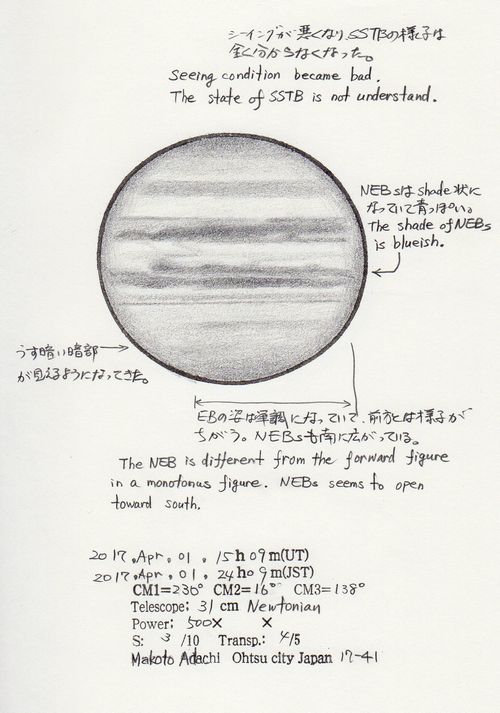 シーイングが悪くなり、SSTBの様子は
全く分からなくなった。
Seeing condition became bad.
The state of SSTB is not understand.
NEBsはshade状に
なっていて青っぽい。
The shade of NEBs
is blueish.
うす暗い暗部
が見えるようになってきた。
EBの姿は単調になっていて、前方とは様子が
ちがう。NEBsも南に広がっている。
The NEB is different from the forward figure
in a monotonus figure. NEBs seems to open
toward south.
2017, Apr, 01, 15h 09m(UT)
2017, Apr, 01, 24h 09m(JST)
CM1=230° CM2=16° CM3=138°
Telescope: 31 cm Newtonian
Power: 500× ×
S: 3 /10 Transp.: 4/5
Makoto Adachi Ohtsu city Japan 17-41